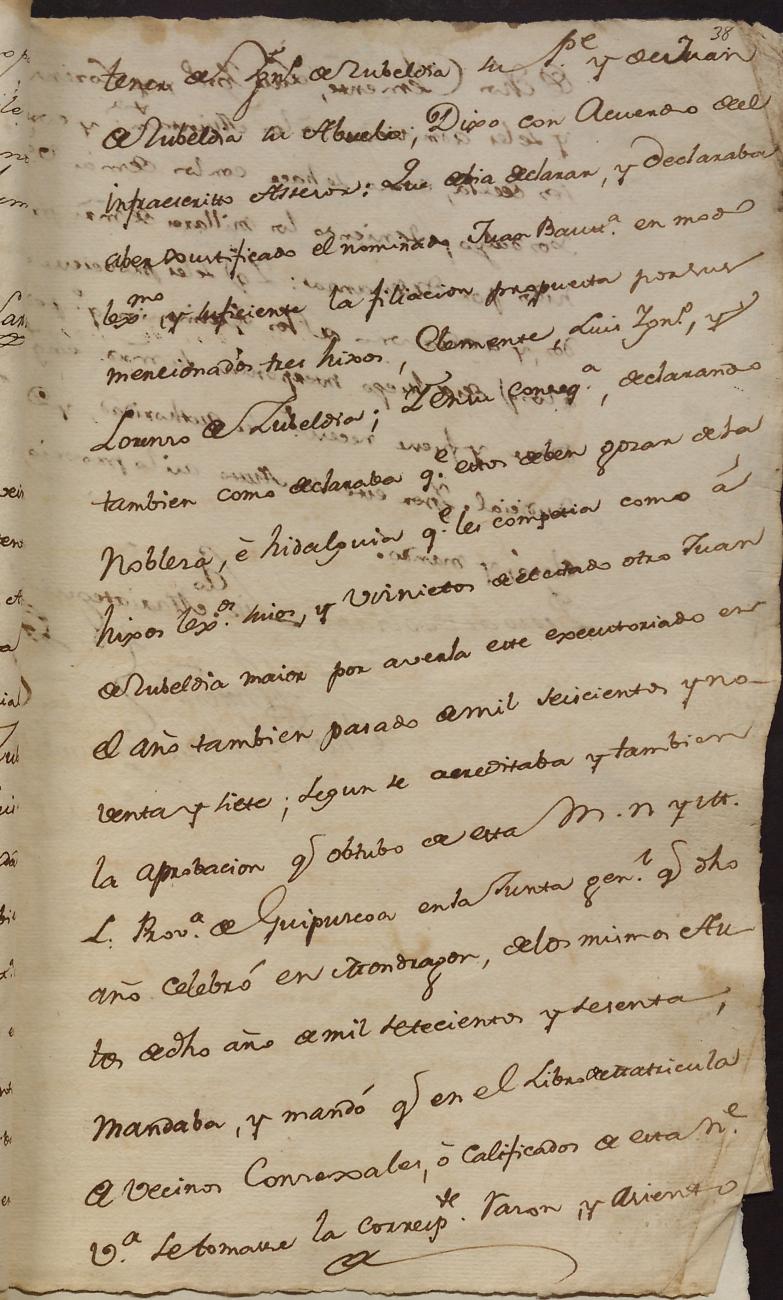 38
tenor de Ygn.º de Zubeldia) su P.e y de Juan
de Zubeldia su Abuelo; Dixo con Acuerdo del
infraescritto Assesor: Que devia declarar, y declaraba
aber Justificado el nominado Juan Baut.a en modo
lex.mo y suficiente la filiacion propuesta por sus
mencionados tres hixos, Clemente, Luis Ygn.º, y
Lorenzo de Zubeldia; Y en su conseq.a, declarando
tambien como declaraba q.e estos deben gozar de la
Nobleza, è hidalguia q.e les competia como á
hixos lex.os suios, y Visnietos del citado otro Juan
de Zubeldia maior por averla este executoriado en
el año tambien pasado de mil seiscientos y no-
venta y siete; segun se acreditaba y tambien
la aprobacion q.e obtubo de esta M. N y M.
L. Prov.a de Guipuzcoa en la Junta gen.l q.e dho
año celebró en Mondragon, de los mismos Au-
tos de dho año de mil setecientos y sesenta,
Mandaba, y mandó q.e en el Libro de Matricula
de Vecinos Consexales, ò Calificados de esta N.e
V.a se tomase la corresp.te razon, y Asiento